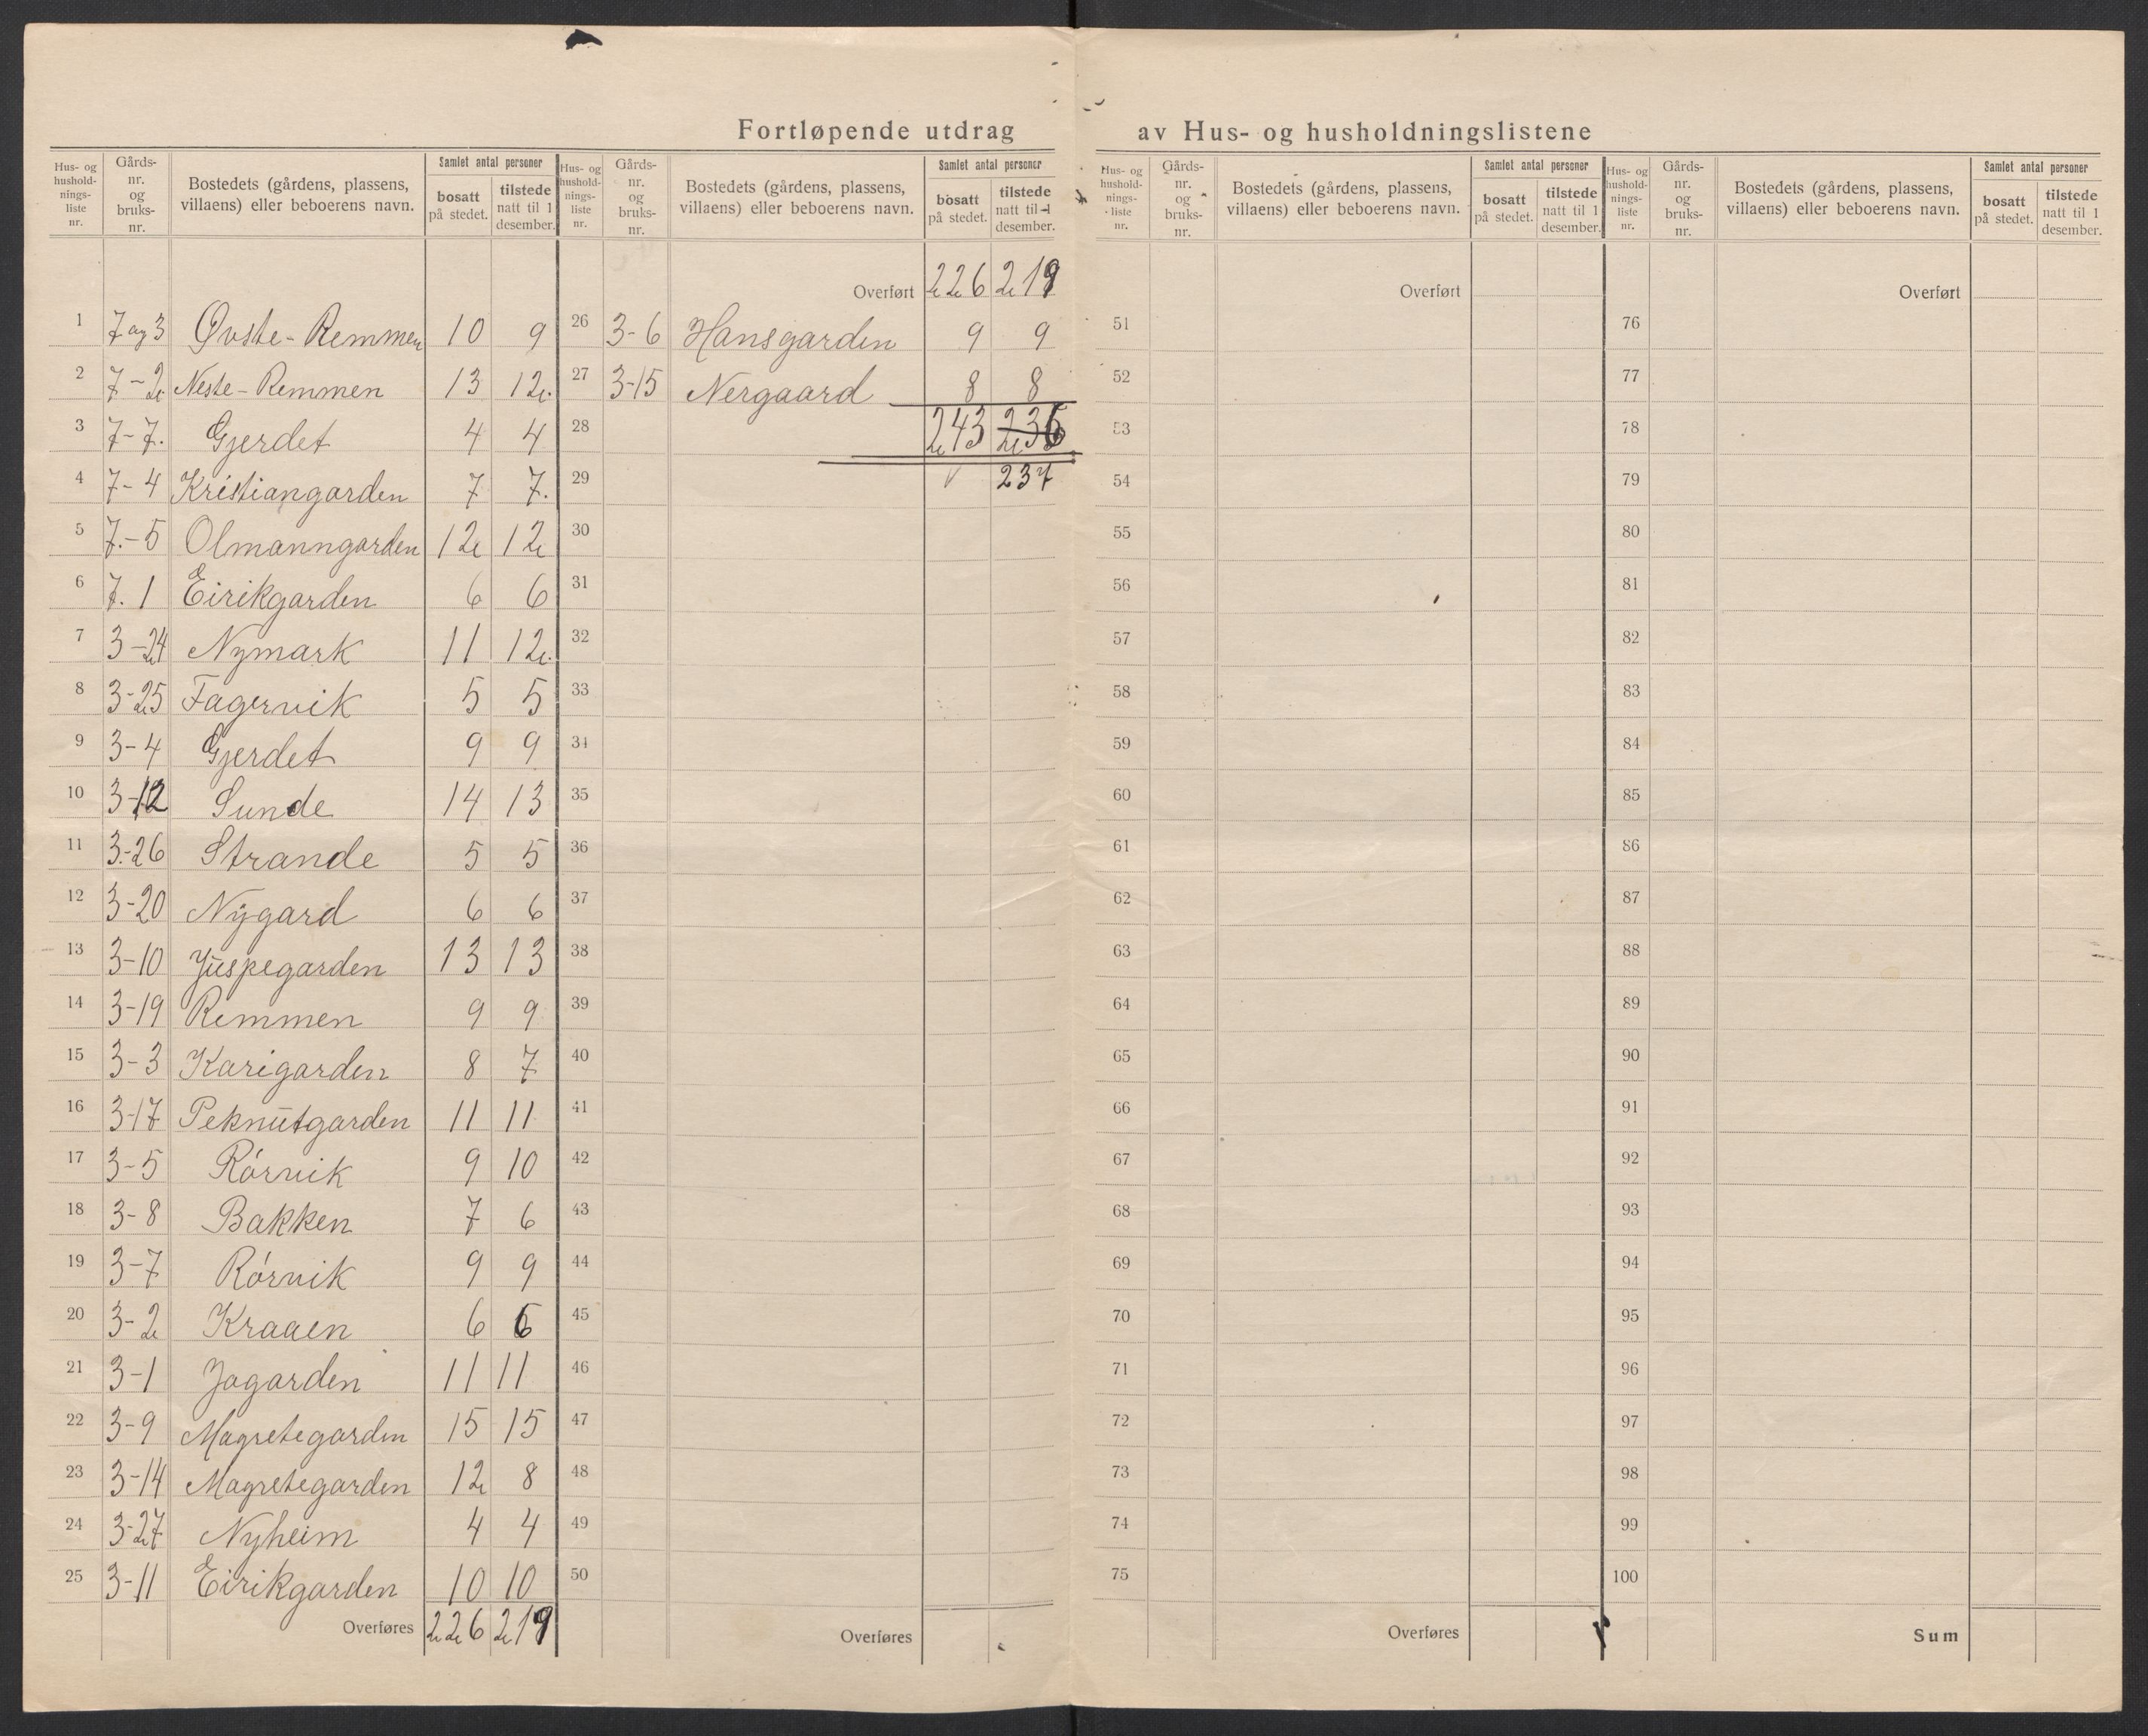 Fortløpende utdrag av Hus- og husholdningslistene
Hus- og husholdnings-liste nr. | Gårds-nr. og bruks-nr. | Bostedets (gårdens, plassens, villaens) eller beboerens navn. | Samlet antal personer: bosatt på stedet. | tilstede natt til 1 desember.
1 7 og 3 Øvste-Remmen 10 9
2 7-2 Neste-Remmen 13 12
3 7-7. Gjerdet 4 4
4 7-4 Kristiangarden 7 7.
5 7.-5 Olmanngarden 12 12
6 7. 1 Eirikgarden 6 6
7 3-24 Nymark 11 12.
8 3-25 Fagervik 5 5
9 3-4 Gjerdet 9 9
10 3-12 Sunde 14 13
11 3.-26 Strande 5 5
12 3-20 Nygard 6 6
13 3-10 Juspegarden 13 13
14 3-19 Remmen 9 9
15 3-3 Karigarden 8 7
16 3-17 Peknutgarden 11 11
17 3-5 Rórvik 9 10
18 3-8 Bakken 7 6
19 3-7 Rórvik 9 9
20 3-2 Kraaen 6 6
21 3-1 Jogarden 11 11
22 3-9 Magretegarden 15 15
23 3-14 Magretegarden 12 8
24 3-27 Nyheim 4 4
25 3-11 Eirikgarden 10 10
Overføres 226 219
Hus- og husholdnings-liste nr. | Gårds-nr. og bruks-nr. | Bostedets (gårdens, plassens, villaens) eller beboerens navn. | Samlet antal personer: bosatt på stedet. | tilstede natt til 1 desember.
Overført 226 219
26 3-6 Hansgarden 9 9
27 3-15 Nergaard 8 8
28 243 236
29 237
30
31
32
33
34
35
36
37
38
39
40
41
42
43
44
45
46
47
48
49
50
Overføres
Hus- og husholdnings-liste nr. | Gårds-nr. og bruks-nr. | Bostedets (gårdens, plassens, villaens) eller beboerens navn. | Samlet antal personer: bosatt på stedet. | tilstede natt til 1 desember.
Overført
51
52
53
54
55
56
57
58
59
60
61
62
63
64
65
66
67
68
69
70
71
72
73
74
75
Overføres
Hus- og husholdnings-liste nr. | Gårds-nr. og bruks-nr. | Bostedets (gårdens, plassens, villaens) eller beboerens navn. | Samlet antal personer: bosatt på stedet. | tilstede natt til 1 desember.
Overført
76
77
78
79
80
81
82
83
84
85
86
87
88
89
90
91
92
93
94
95
96
97
98
99
100
Sum